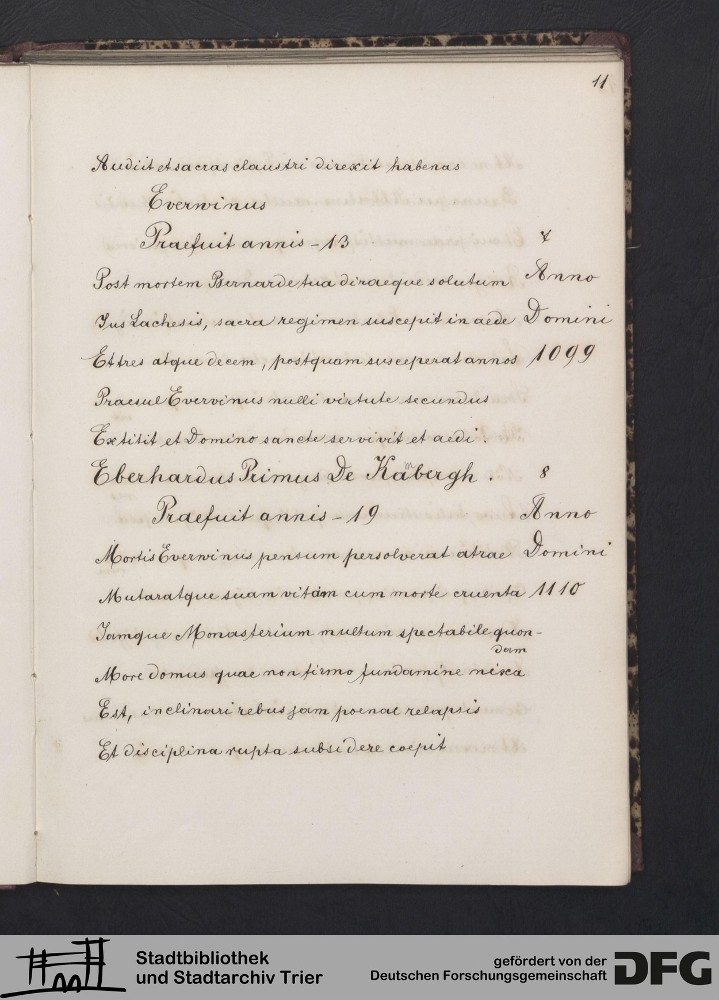 11
Audiit et sacras claustri direxit habenas
Everwinus
Praefuit annis - 13
Post mortem Bernarde tua diraeque solutum Anno
Jus Lachesis, sacra regimen suscepit in aede Domini
Et tres atque decem, postquam susceperat annos 1099
Praesul Evervinus nulli virtute secundus
Extitit et Domino sancte servivit et aedi.
Eberhardus Primus De Kambergh. 8
Praefuit annis - 19 Anno
Mortis Everwinus pensum persolverat atrae Domini
Mutaratque suam vitam cum morte cruenta 1110
Jamque Monasterium multum spectabile quon-
dam
More domus quae non firmo fundamine nixa
Est, inclinari rebus jam poenae relapsis
Et disciplina rupta subsidere coepit
Stadtbibliothek
und Stadtarchiv Trier
gefördert von der
Deutschen Forschungsgemeinschaft
DFG